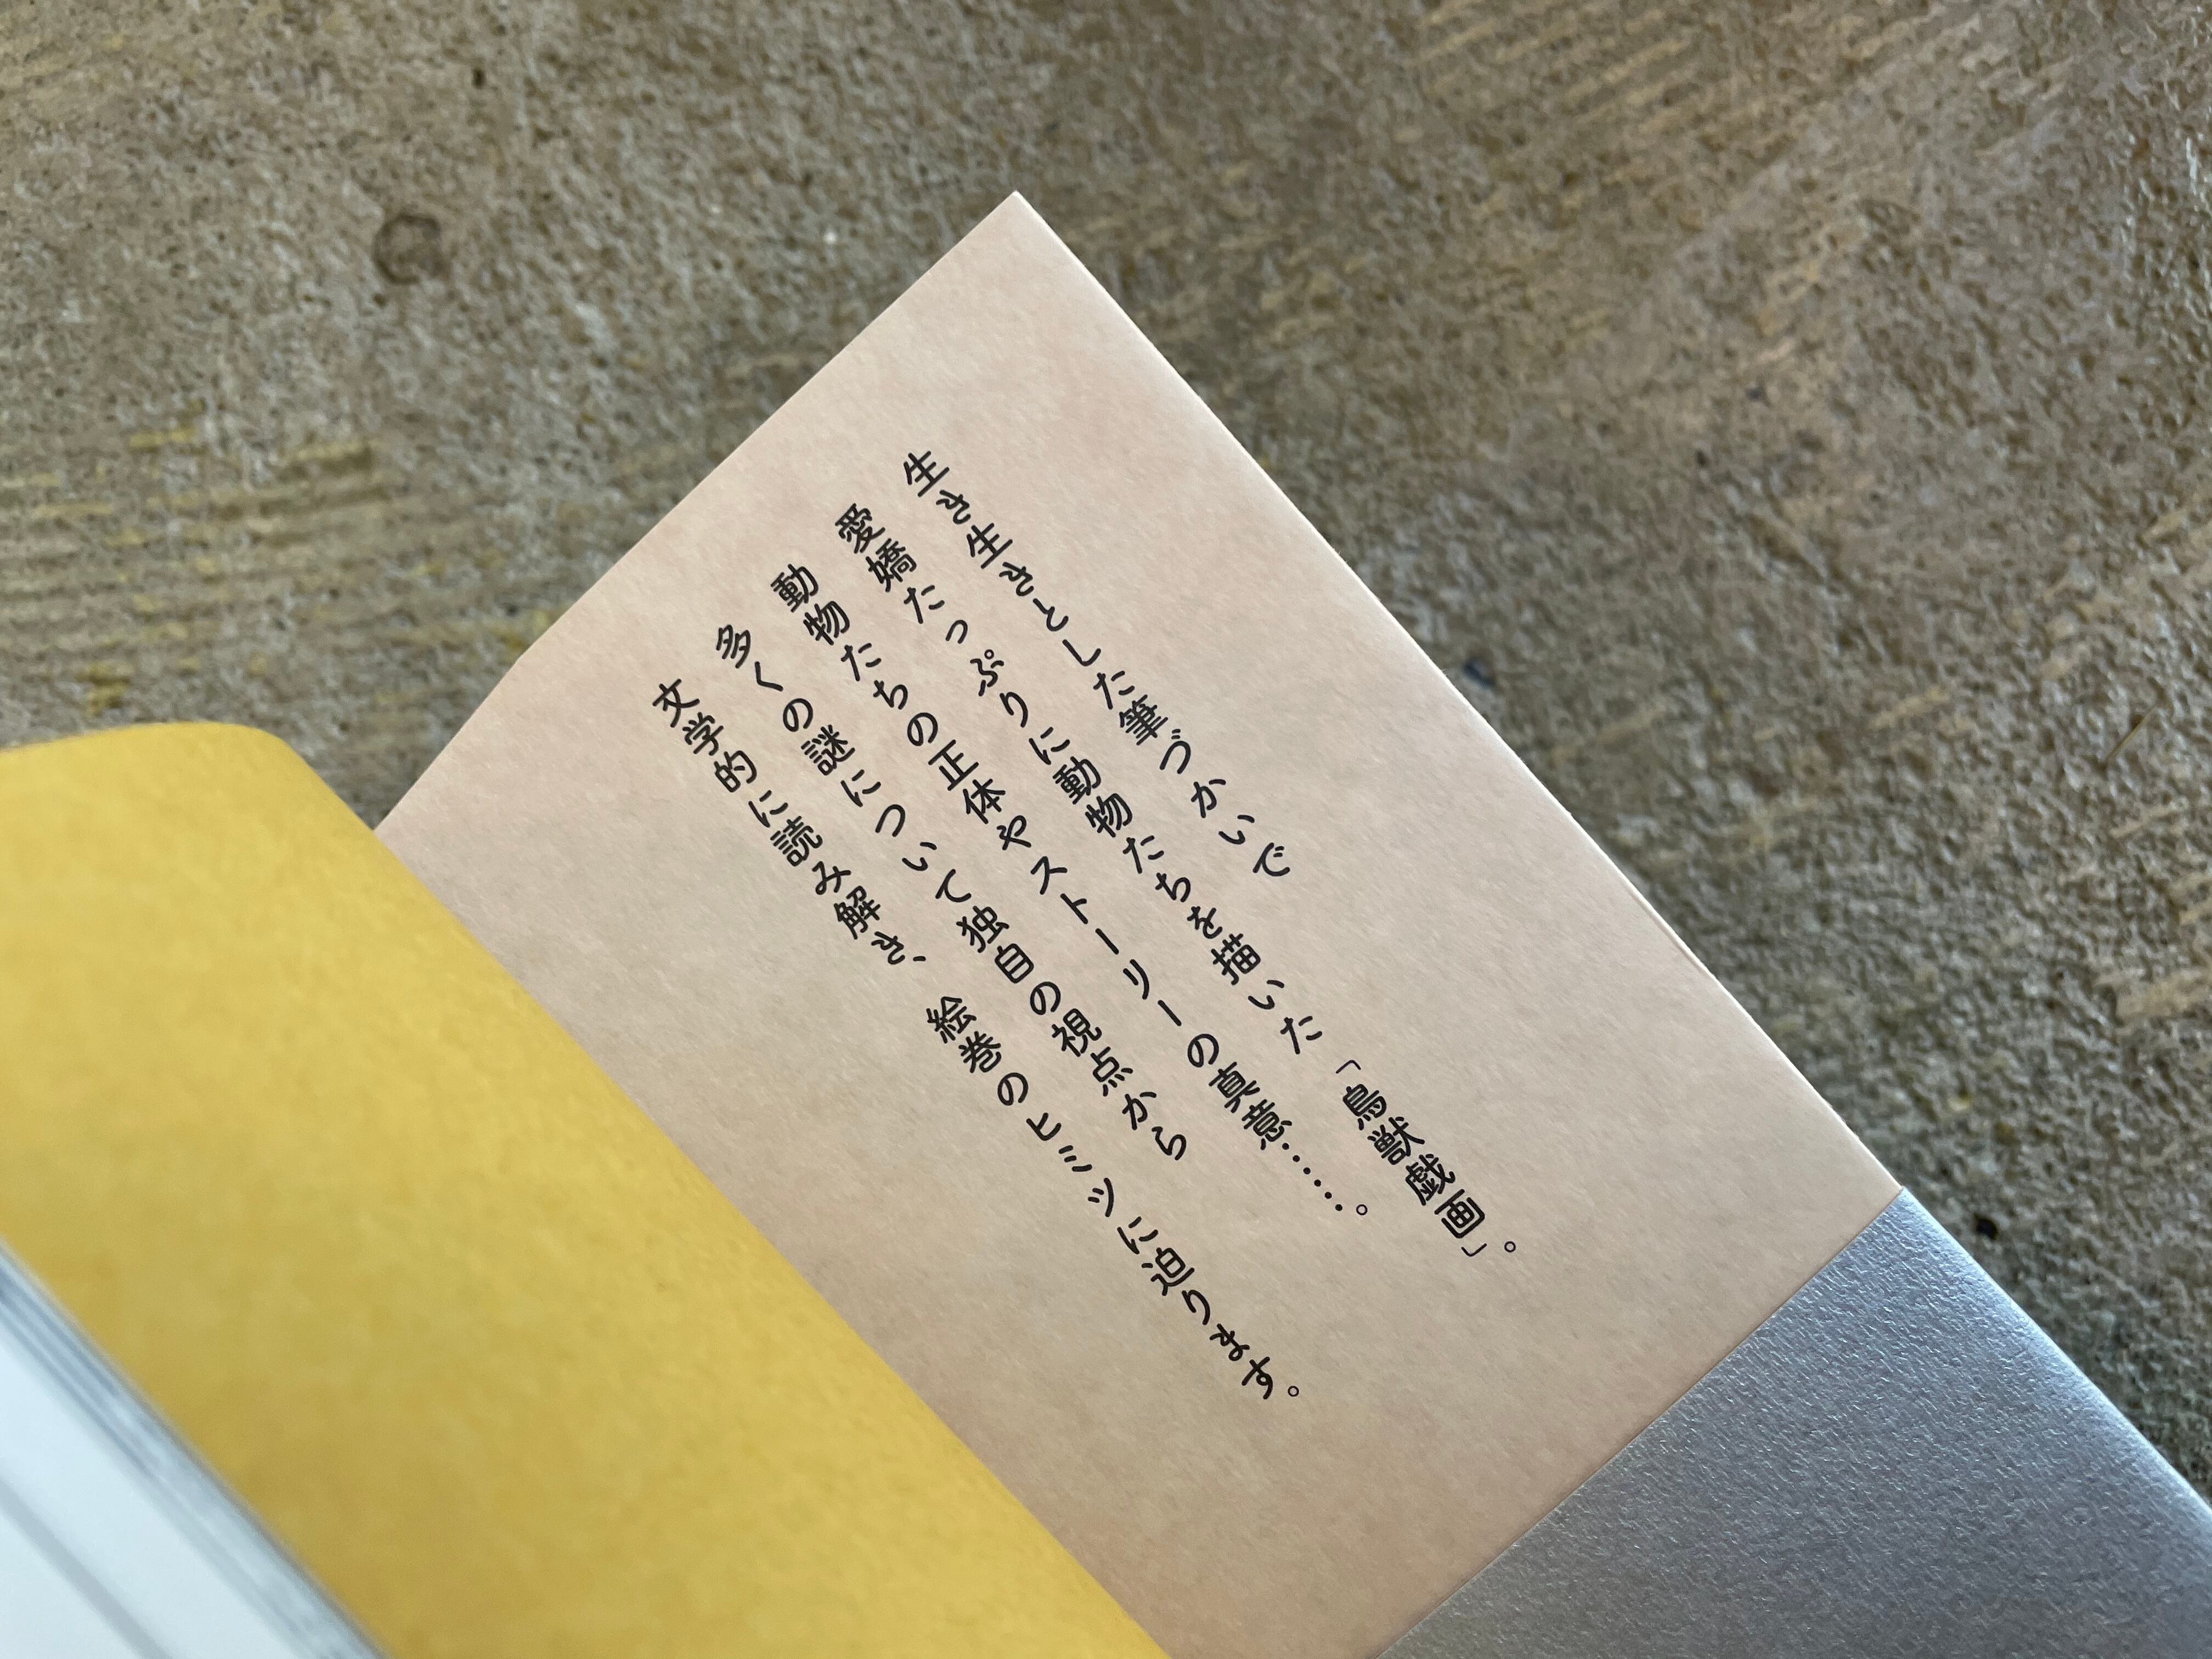 生き生きとした筆づかいで
愛嬌たっぷりに動物たちを描いた「鳥獣戯画」。
動物たちの正体やストーリーの真意……。
多くの謎について独自の視点から
文学的に読み解き、絵巻のヒミツに迫ります。